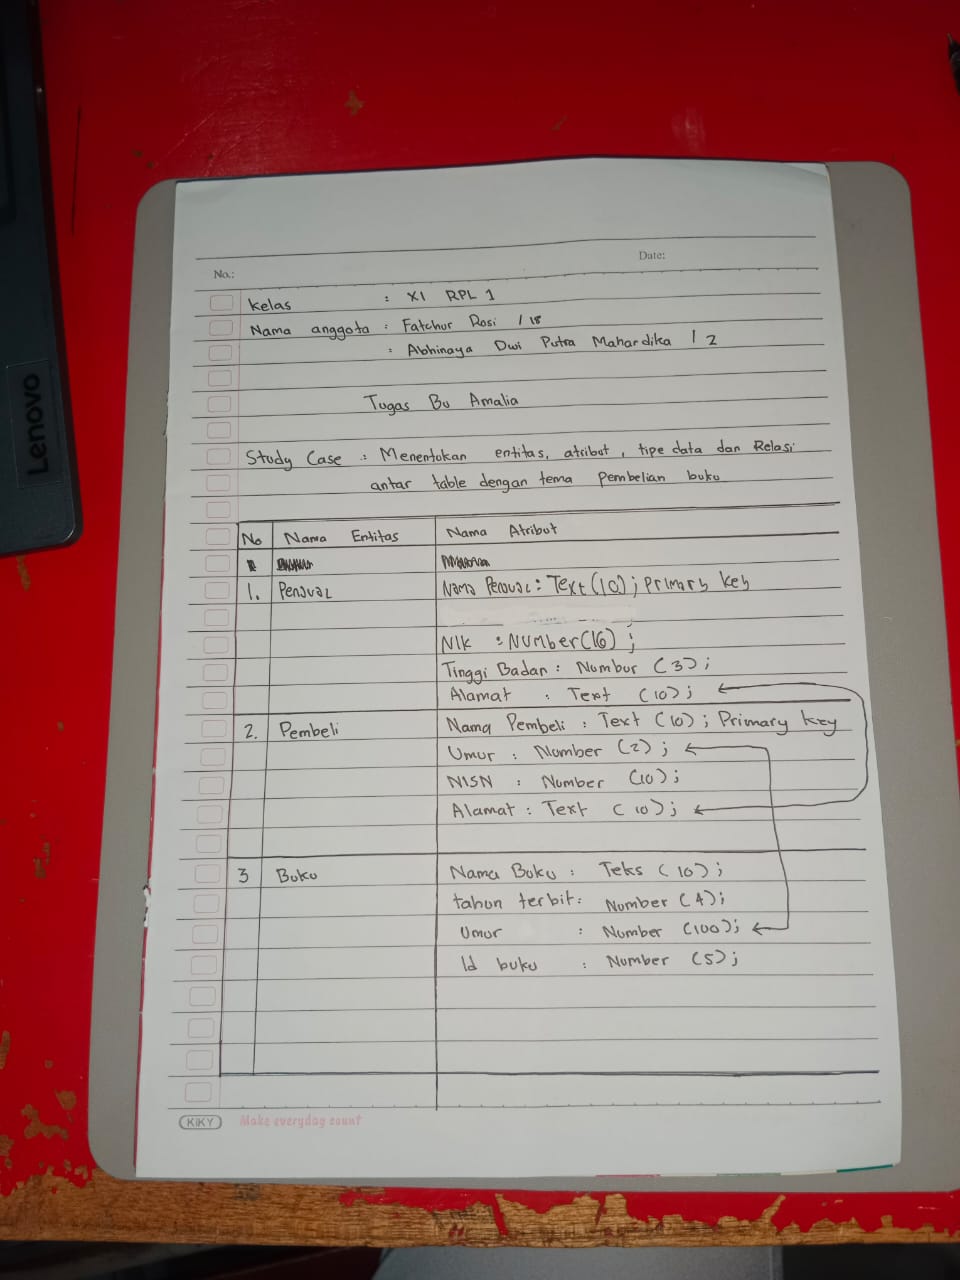 Lenovo
No.:
Date:
Kelas : XI RPL 1
Nama anggota : Fatchur Rosi / 18
: Abhinaya Dwi Putra Mahardika / 2
Tugas Bu Amalia
Study Case : Menentukan entitas, atribut, tipe data dan Relasi
antar table dengan tema pembelian buku
No Nama Entitas Nama Atribut
1. Penjual Nama Penjual : Text (10) ; Primary key
;
NIK : Number (16) ;
Tinggi Badan : Numbur (3) ;
Alamat : Text (10) ;
2. Pembeli Nama Pembeli : Text (10) ; Primary key
Umur : Number (2) ;
NISN : Number (10) ;
Alamat : Text (10) ;
3 Buku Nama Buku : Teks (10) ;
tahun terbit : Number (4) ;
Umur : Number (100) ;
Id buku : Number (5) ;
KiKY Make everyday count